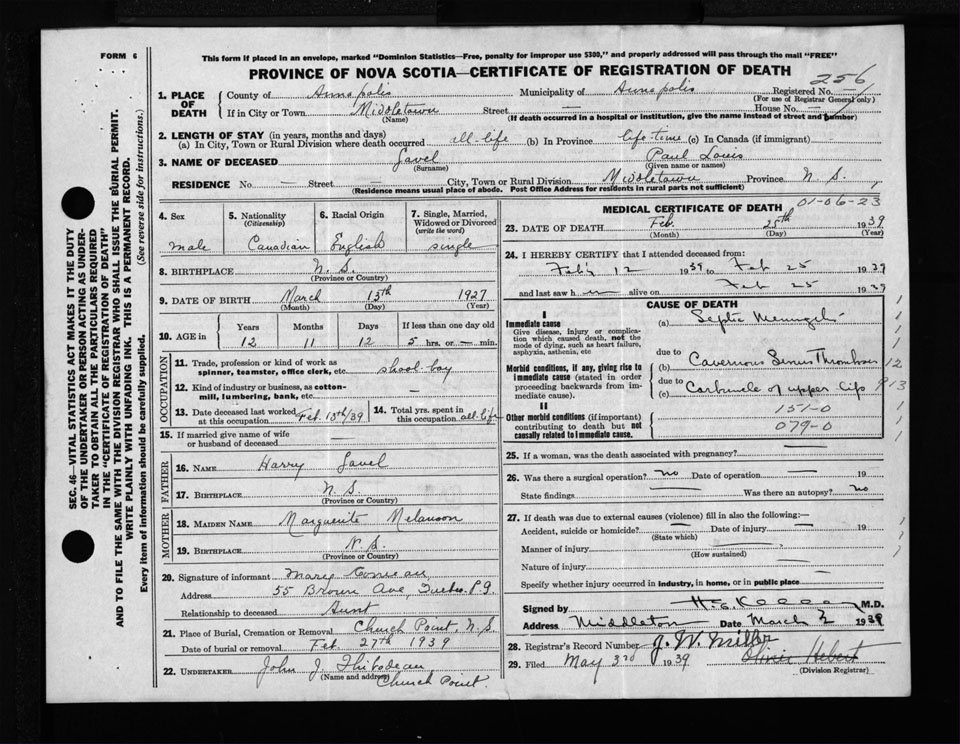 FORM 6
This form if placed in an envelope, marked "Dominion Statistics—Free, penalty for improper use $300," and properly addressed will pass through the mail "FREE"
PROVINCE OF NOVA SCOTIA—CERTIFICATE OF REGISTRATION OF DEATH
256
1. PLACE OF DEATH County of Annapolis Municipality of Annapolis Registered No. —
(For use of Registrar General only)
If in City or Town Middletown Street — House No. —
(Name) (If death occurred in a hospital or institution, give the name instead of street and number)
2. LENGTH OF STAY (in years, months and days)
(a) In City, Town or Rural Division where death occurred all-life (b) In Province life-time (c) In Canada (if immigrant)
3. NAME OF DECEASED Javel Paul Louis
(Surname) (Given name or names)
RESIDENCE No — Street — City, Town or Rural Division Middletown Province N. S.
(Residence means usual place of abode. Post Office Address for residents in rural parts not sufficient)
SEC. 46—VITAL STATISTICS ACT MAKES IT THE DUTY
OF THE UNDERTAKER OR PERSON ACTING AS UNDER-
TAKER TO OBTAIN ALL THE PARTICULARS REQUIRED
IN THE "CERTIFICATE OF REGISTRATION OF DEATH"
AND TO FILE THE SAME WITH THE DIVISION REGISTRAR WHO SHALL ISSUE THE BURIAL PERMIT.
WRITE PLAINLY WITH UNFADING INK. THIS IS A PERMANENT RECORD.
Every item of information should be carefully supplied. (See reverse side for instructions.)
4. Sex 5. Nationality 6. Racial Origin 7. Single, Married,
(Citizenship) Widowed or Divorced
(write the word)
male Canadian English single
8. BIRTHPLACE N. S.
(Province or Country)
9. DATE OF BIRTH March 13th 1927
(Month) (Day) (Year)
10. AGE in Years Months Days If less than one day old
12 11 12 5 hrs. or — min.
11. Trade, profession or kind of work as
spinner, teamster, office clerk, etc. shool-boy
12. Kind of industry or business, as cotton-
mill, lumbering, bank, etc. —
13. Date deceased last worked at this occupation Feb. 13th/39 14. Total yrs. spent in this occupation all-life
15. If married give name of wife
or husband of deceased —
FATHER
16. NAME Harry Javel
17. BIRTHPLACE N. S.
(Province or Country)
MOTHER
18. MAIDEN NAME Marguerite Melanson
19. BIRTHPLACE N. S.
(Province or Country)
20. Signature of informant Mary Comeau
Address 55 Brown Ave, Quebec P.Q.
Relationship to deceased Aunt
21. Place of Burial, Cremation or Removal Church Point, N. S.
Date of burial or removal Feb. 27th 1939
22. UNDERTAKER John J. Thibodeau
(Name and address) Church Point.
01-06-23
MEDICAL CERTIFICATE OF DEATH
23. DATE OF DEATH Feb. 25th 1939
(Month) (Day) (Year)
24. I HEREBY CERTIFY that I attended deceased from:
Feb'y 12 1939 to Feb 25 1939
and last saw h alive on Feb 25 1939
CAUSE OF DEATH
I
Immediate cause (a) Septic Meningitis
Give disease, injury or complica-
tion which caused death, not the
mode of dying, such as heart failure,
asphyxia, asthenia, etc
due to
Morbid conditions, if any, giving rise to
immediate cause (stated in order
proceeding backwards from im-
mediate cause).
(b) Cavernous Sinus Thrombosis 12
due to
(c) Carbuncle of upper lip 9 13
II
Other morbid conditions (if important)
contributing to death but not
causally related to immediate cause.
151-0
079-0
25. If a woman, was the death associated with pregnancy? —
26. Was there a surgical operation? no Date of operation — 19
State findings — Was there an autopsy? no
27. If death was due to external causes (violence) fill in also the following:—
Accident, suicide or homicide? — Date of injury — 19
(State which)
Manner of injury —
(How sustained)
Nature of injury —
Specify whether injury occurred in industry, in home, or in public place —
Signed by M.D.
Address Middleton Date March 2 1939
28. Registrar's Record Number J. W. Miller
29. Filed May 3rd 1939 Olivier Hebert
(Division Registrar)